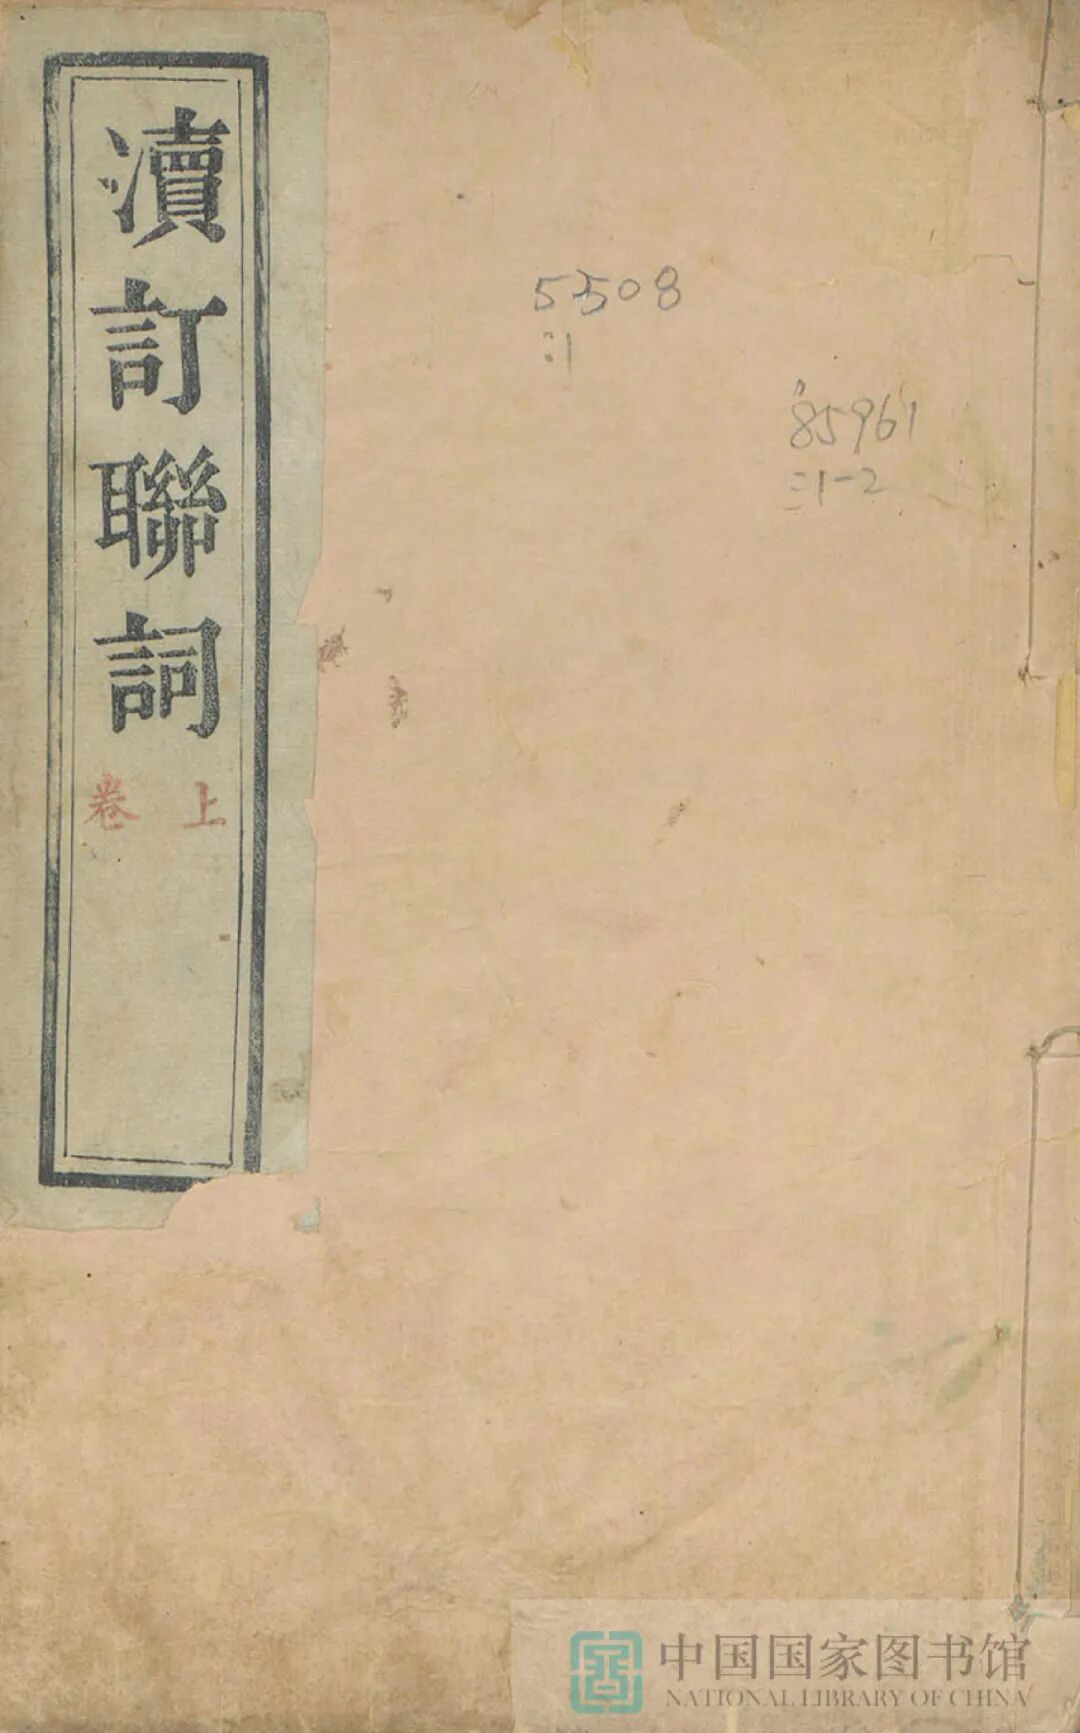 瀆訂聯詞
上卷
5508
:1
85961
:1-2
中国国家图书馆
NATIONAL LIBRARY OF CHINA